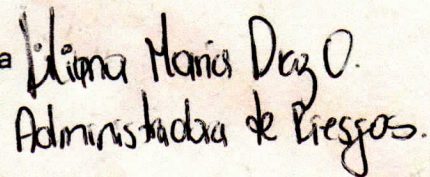 a Liliana Maria Diaz O.
Administradora de Riesgos.